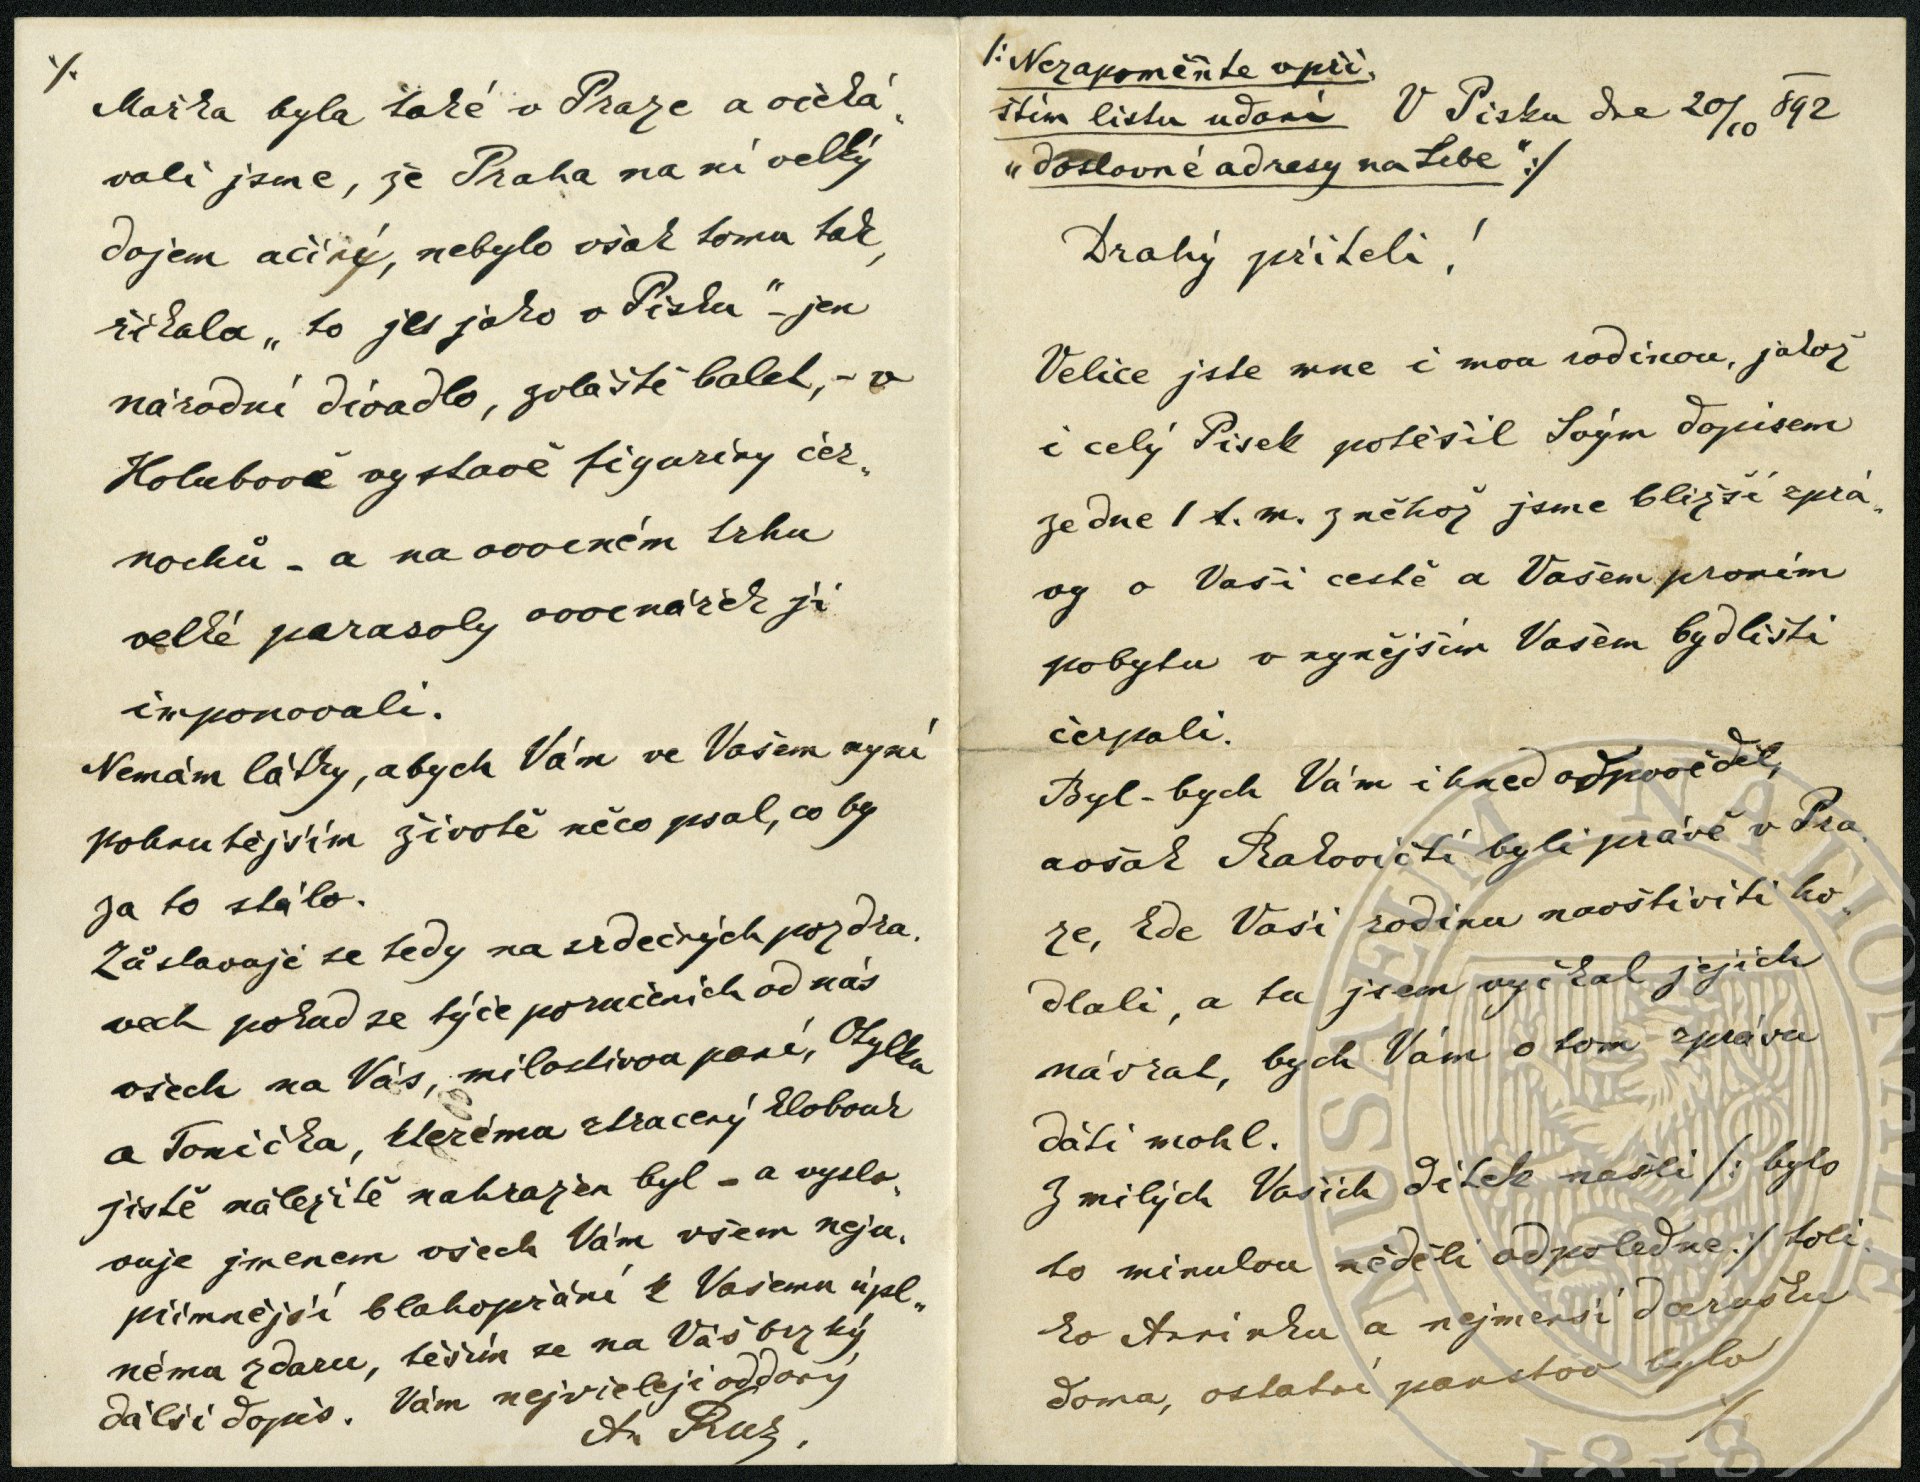 /: Nezapomeňte v při-
štím listu udání
„doslovné adresy na Sebe“ :/
V Písku dne 20/10 892
Drahý příteli!
Velice jste mne i mou rodinou, jakož
i celý Písek potěšil Svým dopisem
ze dne 1 t. m. z něhož jsme bližší zprá„
vy o Vaší cestě a Vašem prvním
pobytu v nynějším Vašem bydlišti
čerpali.
Byl-bych Vám ihned odpověděl,
avšak Rakovičtí byli právě v Pra-
ze, kde Vaši rodinu navštíviti ho„
dlali, a tu jsem vyčkal jejich
návrat, bych Vám o tom zprávu
dáti mohl.
Z milých Vašich dítek našli /: bylo
to minulou něděli odpoledne :/ toli-
ko Aninku a nejmenší darušku
doma, ostatní panstvo bylo
./.
./.
Mařka byla také v Praze a očeká„
vali jsme, že Praha na ní velký
dojem učiný, nebylo však tomu tak,
říkala „to jes jako v Písku“ - jen
národní divadlo, zvláště balet, - v
Holubově vystavě figuriny čer„
nochů - a na ovocném trhu
velké parasoly ovocnářek jí
imponovali.
Nemám látky, abych Vám ve Vašem nyní
pohnutějším životě něco psal, co by
za to stálo.
Zůstavuji se tedy na srdečných pozdra-
vech pokud se týče poručeních od nás
všech na Vás, milostivou paní, Otylku
a Tonička, kterému ztracený klobouk
jistě náležitě nahrazen byl - a vyslo-
vuje jmenem všech Vám všem neju-
přímnější blahopřání k Vašemu úpl„
nému zdaru, těším se na Váš brzký
dálší dopis. Vám nejvíceleji oddaný
An Ruz.
MUSAEUM NATIONALE
1818